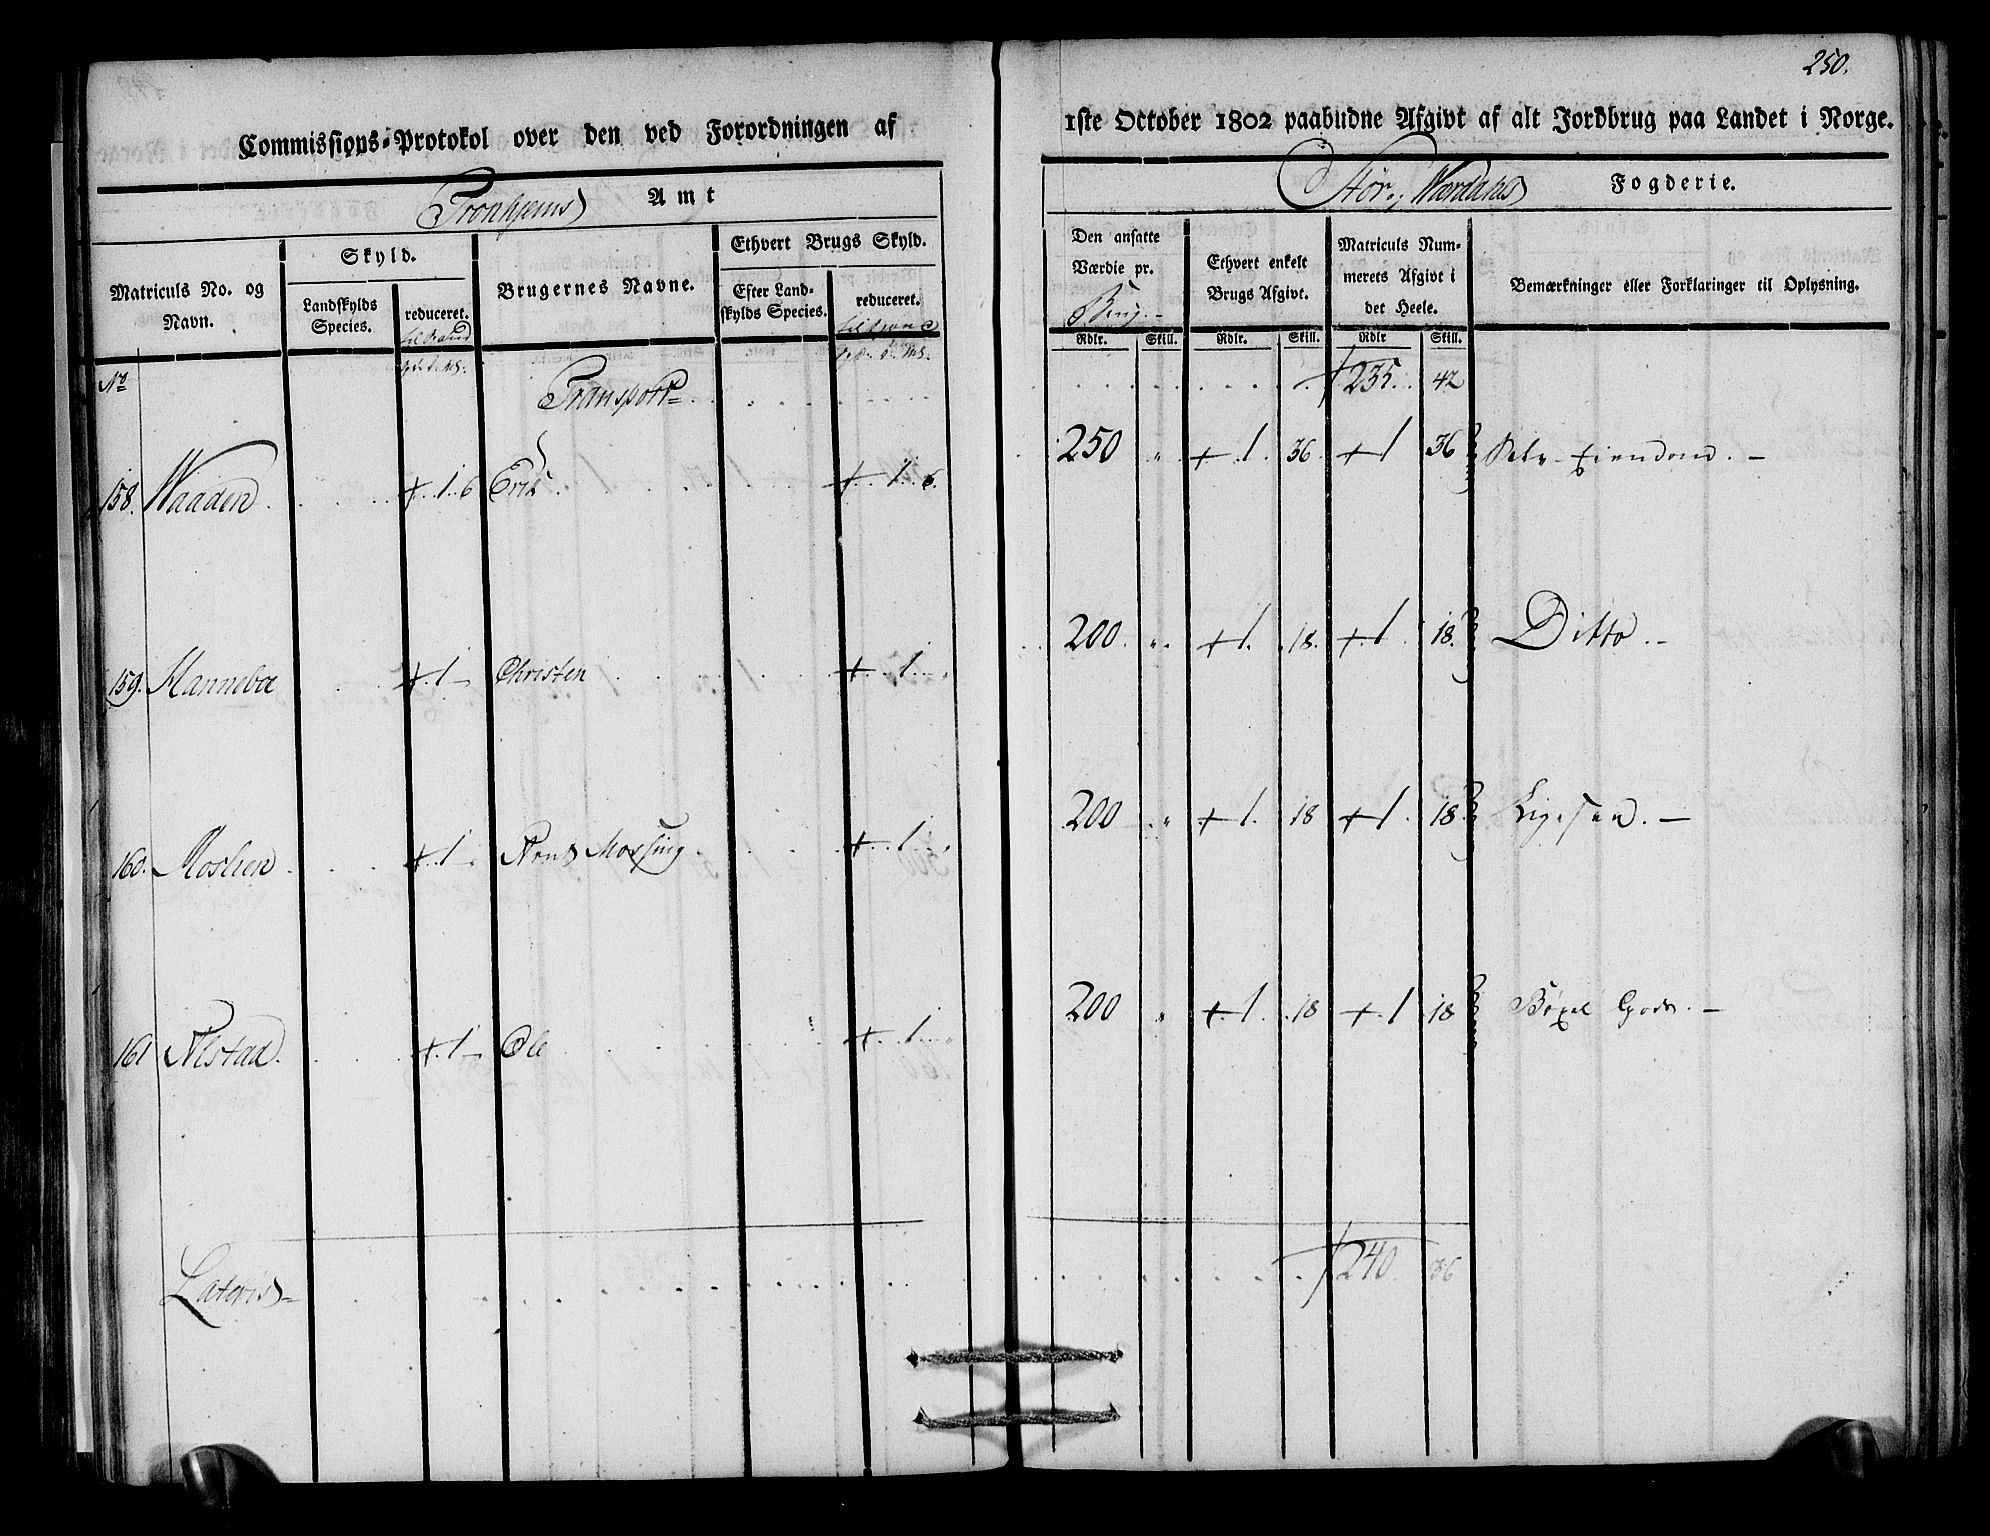 250.
Commissions-Protokol over den ved Forordningen af 1ste October 1802 paabudne Afgivt af alt Jordbrug paa Landet i Norge.
Tronhjems Amt
Stør- Værdahls Fogderie.
Matriculs No. og Navn.
Skyld.
Landskylds Species.
reduceret.
Brugernes Navne.
Ethvert Brugs Skyld.
Efter Landskylds Species.
reduceret.
Den ansatte Værdie pr. Brug.
Ethvert enkelt Brugs Afgivt.
Matriculs Nummerets Afgivt i det Heele.
Bemærkninger eller Forklaringer til Oplysning.
Rdlr. Skill. Rdlr. Skill. Rdlr Skill.
No
Transport 235. 42
158. Waaden . 1. 6 Eric 1. 6. 250 " 1. 36. 1 36
159. 1 - Christen 1 200. " 1. 18. 1. 18. Ditto. -
160. Moslien . 1 - Arnt Morssing . 1 200 " 1. 18 1. 18 Ligesaa. -
161 Alstad. 1 - Ole 1 200 " 1. 18 1 18 Bøxel Gods. -
Lateris 240. 36